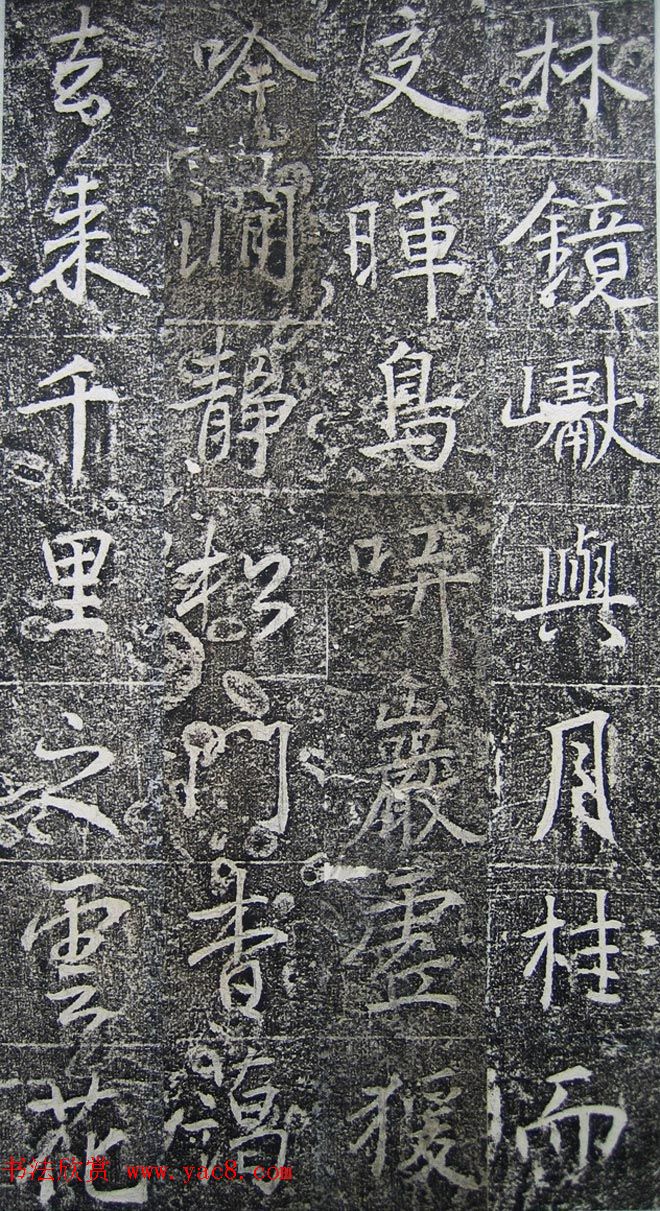 林鏡巘與月桂而
交暉鳥哢巖虛猨
吟澗靜松門杳藹
去来千里之雲花
书法欣赏 www.yac8.com